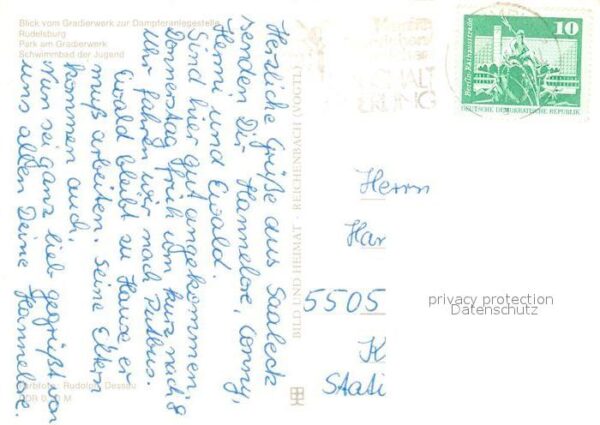 Blick vom Gradierwerk zur Dampferanlegestelle
Rudelsburg
Park am Gradierwerk
Schwimmbad der Jugend
Herzliche Grüße aus Saaleck
senden Dir Hannelore, Conny,
Hermi und Ewald.
Sind hier gut angekommen,
Donnerstag früh vom kurz nach 8
Uhr fahren wir nach Putbus.
Ewald bleibt zu Hause er
muß arbeiten. Seine Eltern
kommen auch.
Nun sei ganz lieb gegrüßt von
uns allen Deine Hannelore.
Farbfoto: Rudolph, Dessau
DDR M
BILD UND HEIMAT · REICHENBACH (VOGTL)
10
Berlin-Rathausstraße
DEUTSCHE DEMOKRATISCHE REPUBLIK
Herrn
Har
5505
K
Stati
privacy protection
Datenschutz